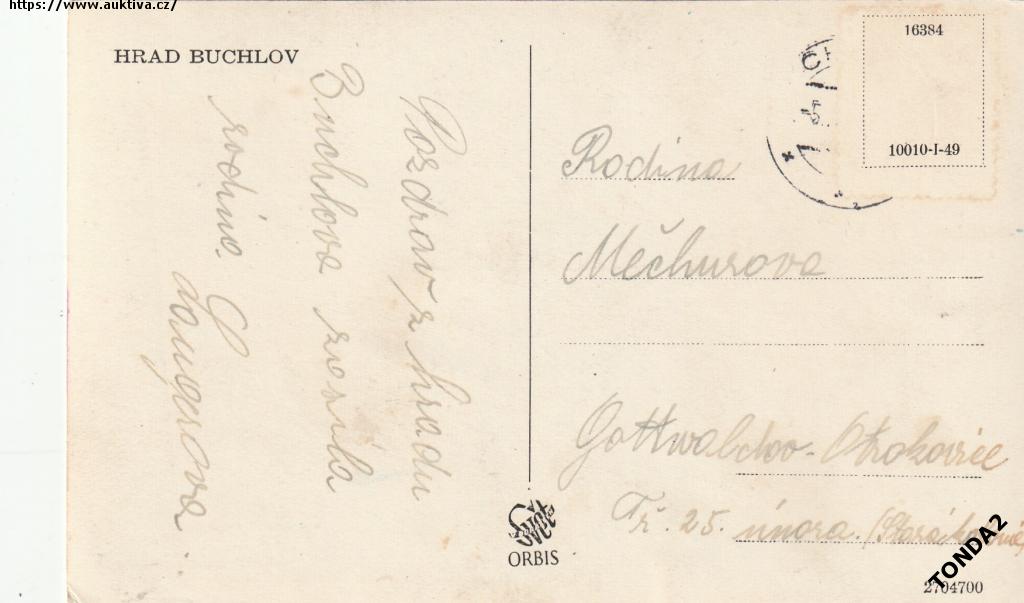 https://www.auktiva.cz/
HRAD BUCHLOV
Pozdrav z hradu
Buchlova
rodina
16384
10010-I-49
Rodina
Měchurova
Gottwaldov - Otrokovice
Tř. 25. února.
ORBIS
TONDA2
2704700